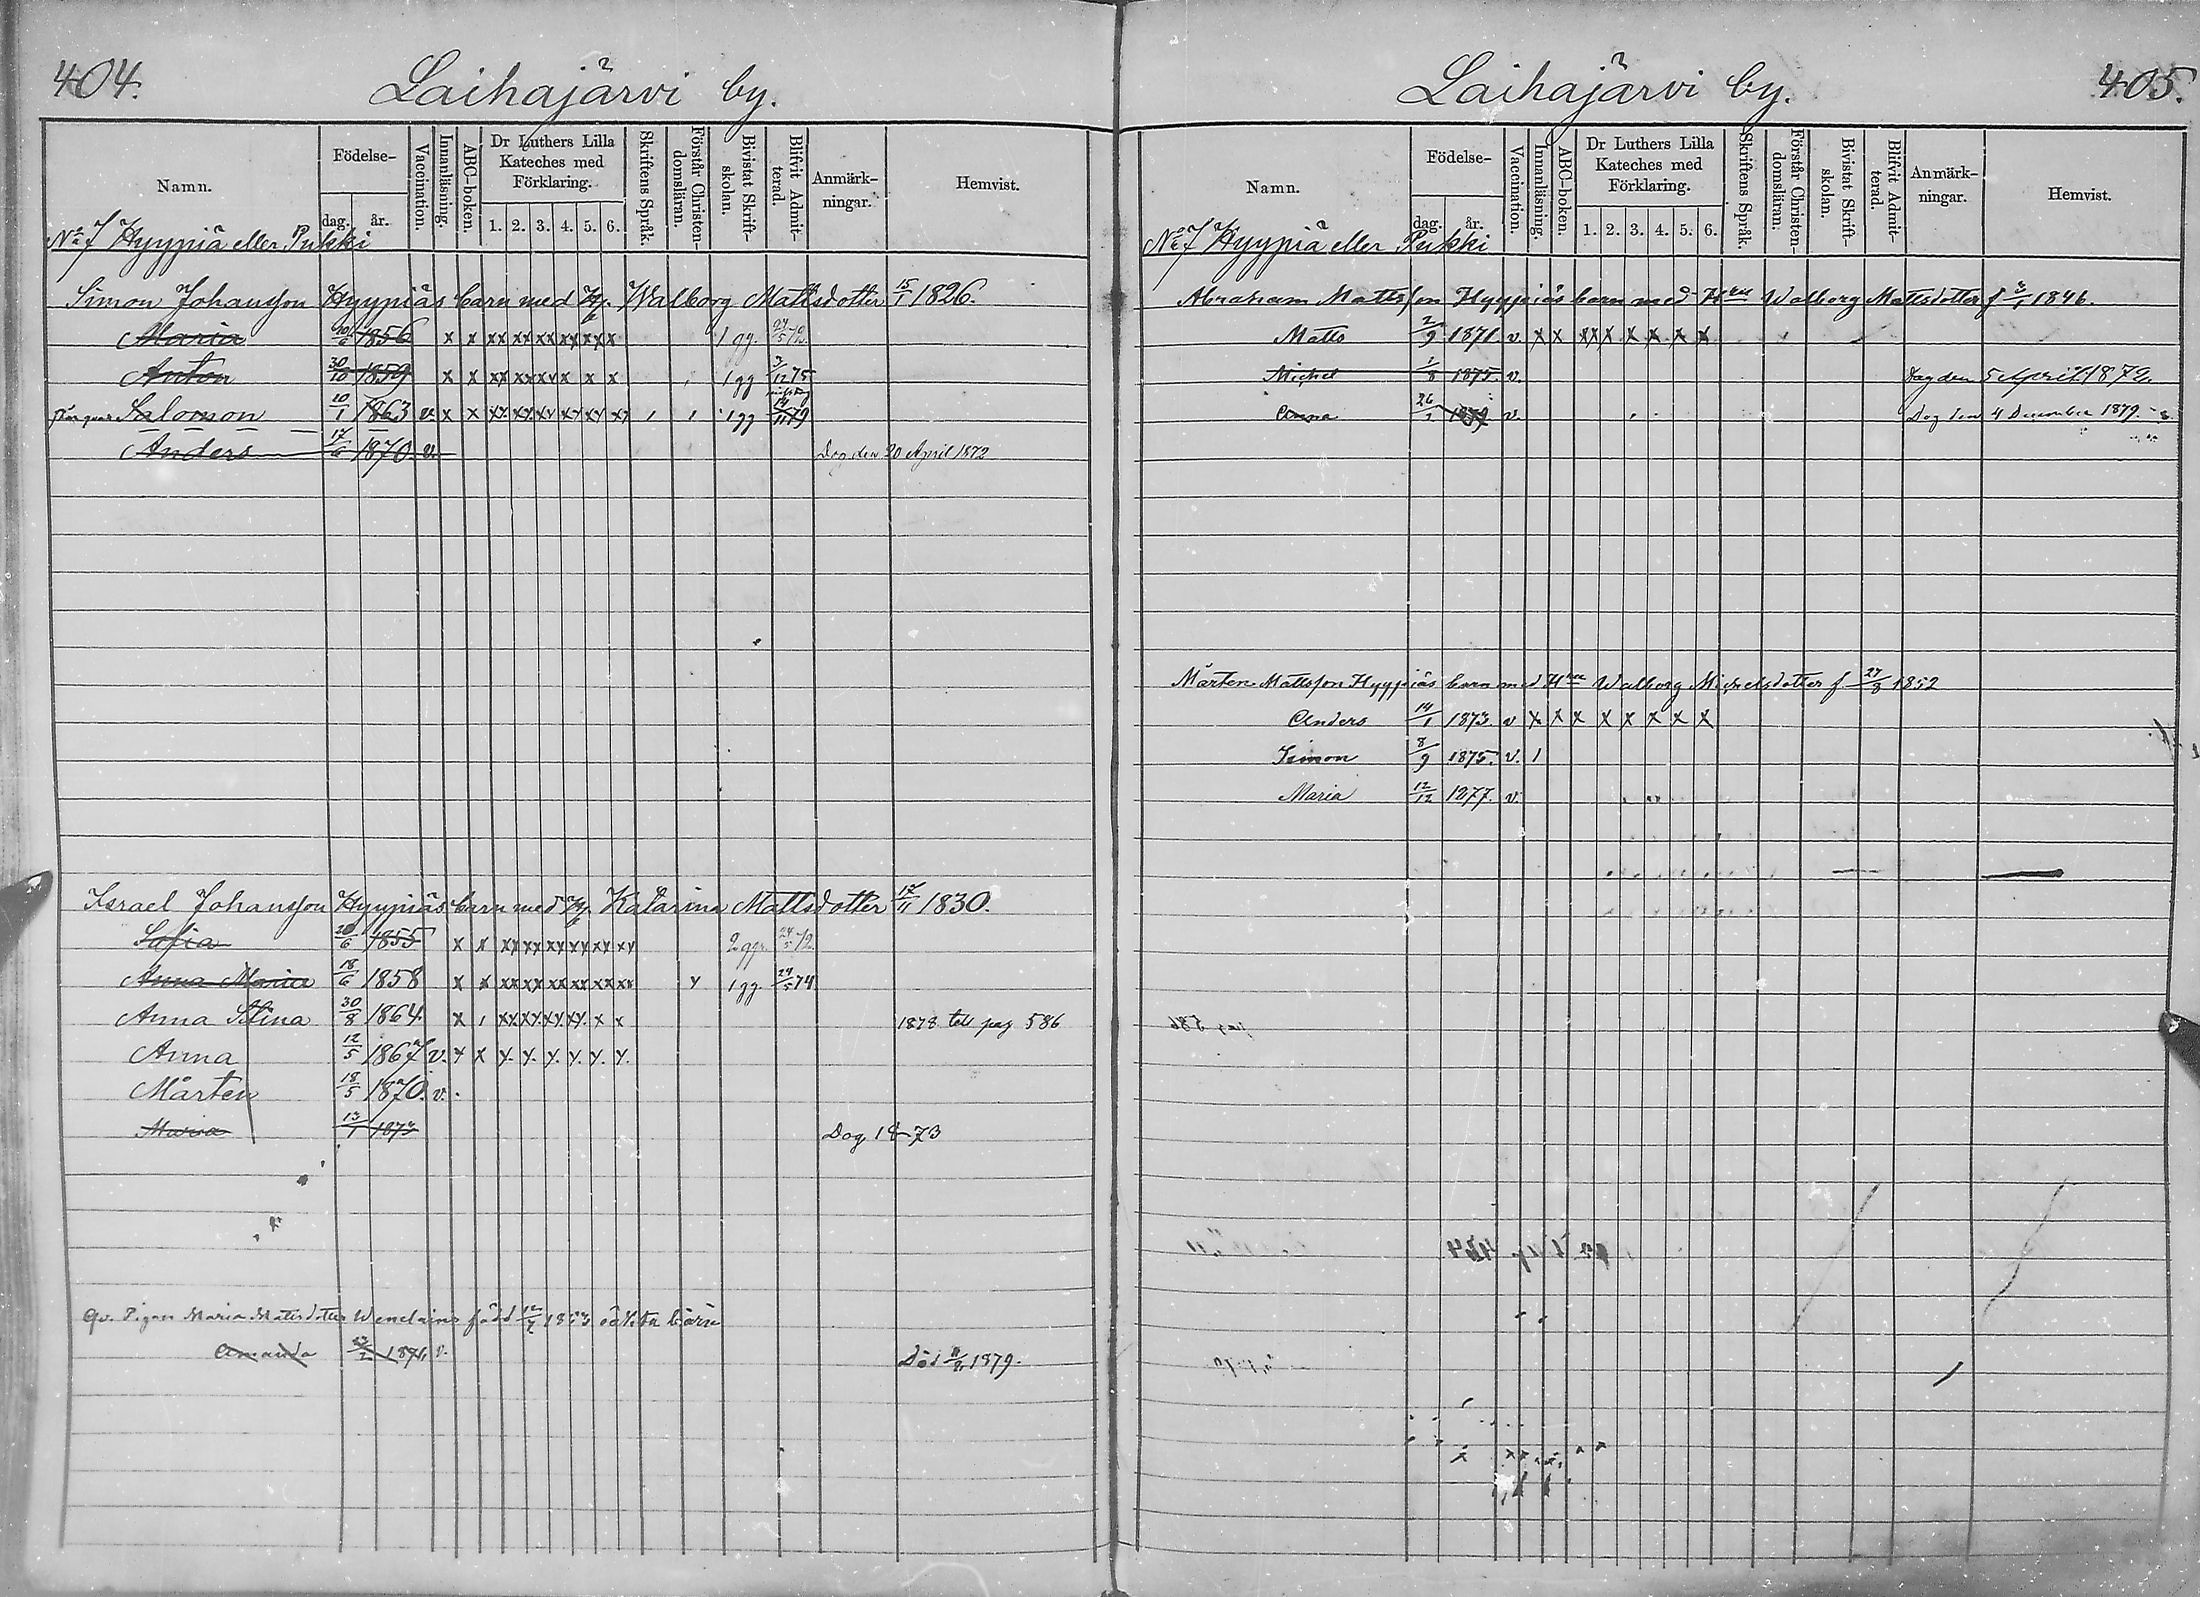 404.
Laihajärvi by.
Namn.
Födelse-
dag. år.
Vaccination.
Innanläsning.
ABC-boken.
Dr Luthers Lilla
Kateches med
Förklaring.
1. 2. 3. 4. 5. 6.
Skriftens Språk.
Förstår Christen-
domsläran.
Bivistat Skrift-
skolan.
Blifvit Admit-
terad.
Anmärk-
ningar.
Hemvist.
No 7 Hyypiä eller Pukki
Simon Johansson Hyypiäs barn med H. Walborg Mattsdotter 15/1 1826.
Maria 10/6 1856 x x xx xx xx xx xx x 1 gg. 24/5 72.
Anton 30/10 1859 x x xx xx xx x x x 1 gg 3/12 75
Salomon 10/1 1863 v. x x xx xx xx xx xx xx 1 gg 14/11 79
Anders 17/6 1870. v. Dog den 20 April 1872
Israel Johansson Hyypiäs barn med H. Katarina Mattsdotter 17/11 1830.
Sofia 20/6 1855 x x xx xx xx xx xx xx 2 ggr. 24/5 72.
Anna Maria 18/6 1858 x x xx xx xx xx xx xx x 1 gg. 24/5 74
Anna Stina 30/8 1864. x 1 xx xx xx xx x x 1878 till pag 586
Anna 12/5 1867 v. x x x. x. x. x. x. x.
Mårten 18/5 1870. v.
Maria 13/1 1873 Dog 1873
Qv. Pigan Maria Mattsdotter född oäkta barn
Amanda v. Död 1879.
405.
Laihajärvi by.
Namn.
Födelse-
dag. år.
Vaccination.
Innanläsning.
ABC-boken.
Dr Luthers Lilla
Kateches med
Förklaring.
1. 2. 3. 4. 5. 6.
Skriftens Språk.
Förstår Christen-
domsläran.
Bivistat Skrift-
skolan.
Blifvit Admit-
terad.
Anmärk-
ningar.
Hemvist.
No 7 Hyypiä eller Pukki
Abraham Mattsson Hyypiäs barn med Hru Walborg Mattsdotter f 3/1 1846.
Matts 2/9 1871 v. x x xx x x x x x
Michel 1/8 1875. v. Dog den 5 April 1872.
Anna 26/1 1879 v. Dog den 4 December 1879.
Mårten Mattsson Hyypiäs barn med Hru Walborg Michelsdotter f. 27/8 1852
Anders 14/1 1873. v x x x x x x x x
Simon 8/9 1875. v. 1
Maria 12/12 1877. v.